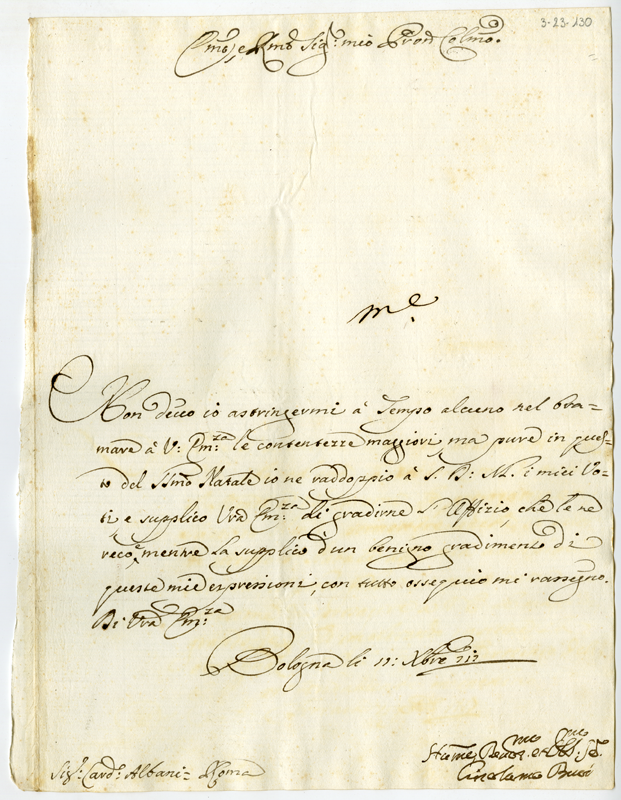 3-23-130
Em͞o, e Rm͞o Sig.r mio Pron͞ Colm͞o.
Non deuo io astringermi à Tempo alcuno nel bra=
mare à V: Em:za le contentezze maggiori, ma pure in ques=
to del SSm͞o Natale io ne raddoppio à S. D: M. i miei Vo=
ti, e supplico Vrã Em:za di gradirne l'Offizio, che le ne
reco, mentre la supplico d'un benigno gradimento di
queste mie espressioni, con tutto ossequio mi rassegno.
Di Vrã Em:za
Bologna li 11: Xbre
Sig.r Card.l Albani = Roma
Girolamo